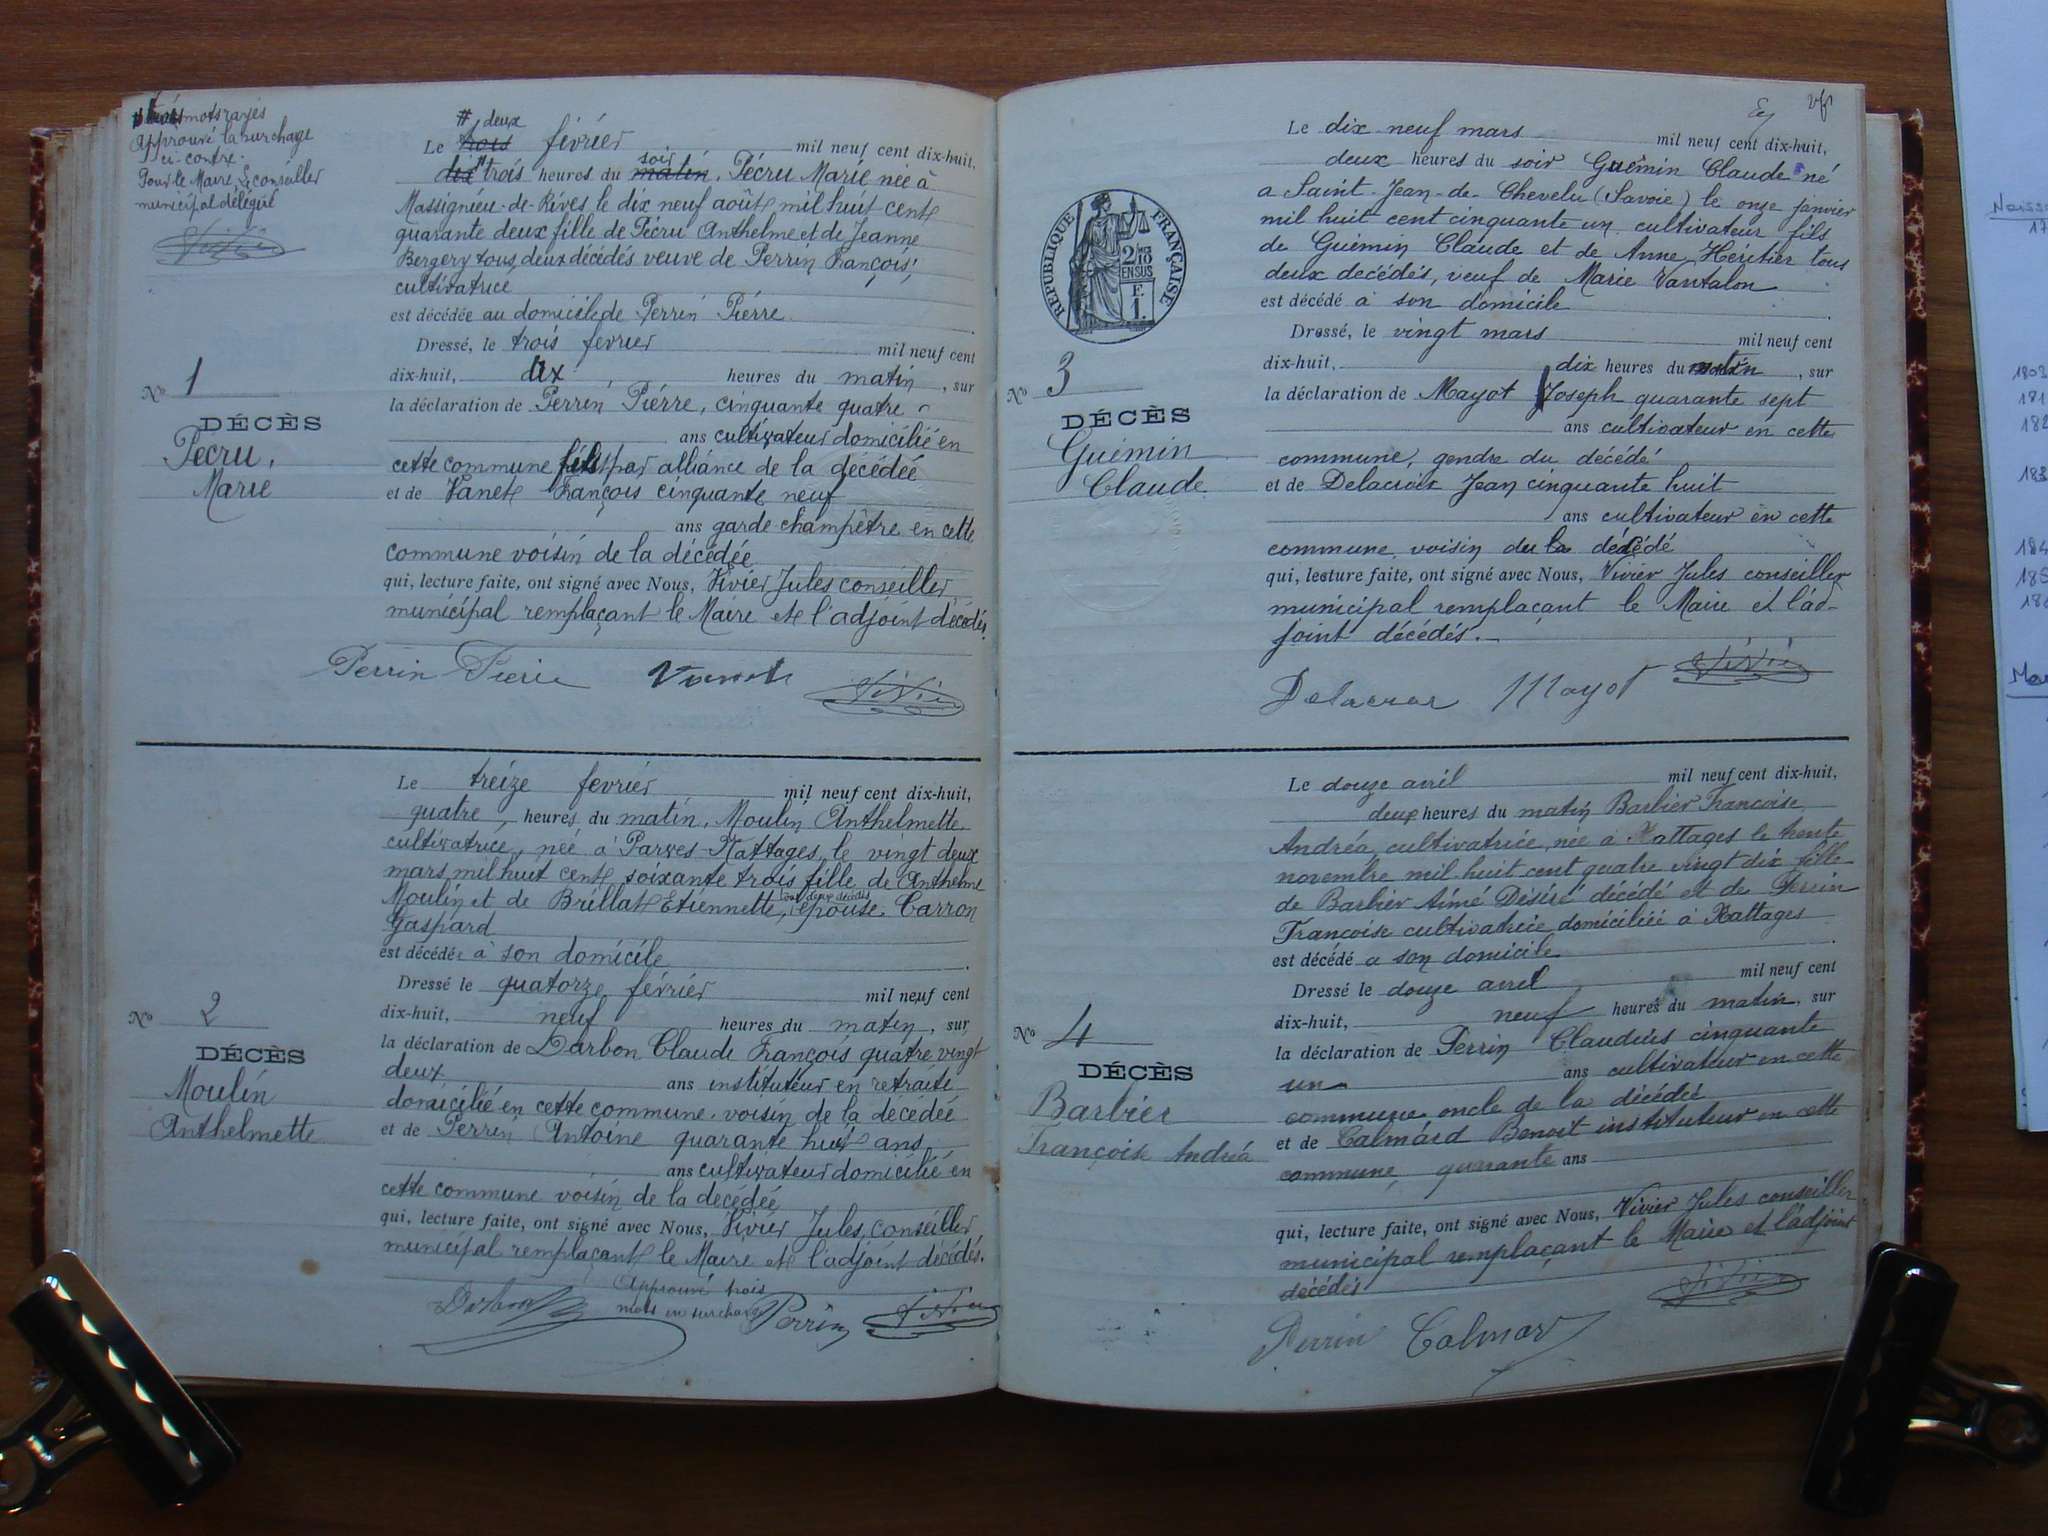 trois mots rayés
Approuvé la surcharge
ci-contre.
Pour le Maire, Le conseiller
municipal délégué
# deux
Le trois février mil neuf cent dix-huit,
soir
dix trois heures du matin, Pécru Marie née à
Massignieu-de-Rives le dix neuf août mil huit cent
quarante deux fille de Pécru Anthelme et de Jeanne
Bergery tous deux décédés veuve de Perrin François,
cultivatrice
est décédée au domicile de Perrin Pierre
Dressé, le trois fevrier mil neuf cent
dix-huit, dix heures du matin, sur
No 1
la déclaration de Perrin Pierre, cinquante quatre
DÉCÈS
ans cultivateur domicilié en
Pécru,
cette commune fils par alliance de la décédée
Marie
et de Vanet François cinquante neuf
ans garde-champêtre en cette
commune voisin de la décédée
qui, lecture faite, ont signé avec Nous, Vivier Jules conseiller
municipal remplaçant le Maire et l'adjoint décédés.
Perrin Pierre
Le treize fevrier mil neuf cent dix-huit,
quatre heures du matin, Moulin Anthelmette
cultivatrice, née à Parves-Nattages, le vingt deux
mars mil huit cent soixante trois fille de Anthelme
tous deux décédés
Moulin et de Brillat Etiennette, épouse Carron
Gaspard
est décédée à son domicile
Dressé le quatorze février mil neuf cent
dix-huit, neuf heures du matin, sur
No 2
la déclaration de Darbon Claude François quatre vingt
DÉCÈS
deux ans instituteur en retraite
Moulin
domicilié en cette commune, voisin de la décédée
Anthelmette
et de Perrin Antoine quarante huit ans
ans cultivateur domicilié en
cette commune voisin de la decédée
qui, lecture faite, ont signé avec Nous, Vivier Jules, conseiller
municipal remplaçant le Maire et l'adjoint décédés.
Approuvé trois
mots en surcharge
Perrin
Le dix-neuf mars mil neuf cent dix-huit,
deux heures du soir Guémin Claude né
a Saint-Jean-de-Chevelu (Savoie) le onze janvier
mil huit cent cinquante un, cultivateur fils
de Guémin Claude et de Anne Héritier tous
deux decédés, veuf de Marie Vantalon
est décédé à son domicile
RÉPUBLIQUE FRANÇAISE
2/10 EN SUS
F. 1.
Dressé, le vingt mars mil neuf cent
dix-huit, dix heures du matin, sur
No 3
la déclaration de Mayot Joseph quarante sept
DÉCÈS
ans cultivateur en cette
Guémin
commune, gendre du décédé
Claude
et de Delacroix Jean cinquante huit
ans cultivateur en cette
commune, voisin du décédé
qui, lecture faite, ont signé avec Nous, Vivier Jules conseiller
municipal remplaçant le Maire et l'ad-
joint décédés.
Mayot
Le douze avril mil neuf cent dix-huit,
deux heures du matin Barbier Françoise
Andréa, cultivatrice, née à Nattages le trente
novembre mil huit cent quatre vingt dix fille
de Barbier Aimé Désiré décédé et de Perrin
Françoise cultivatrice domiciliée à Nattages
est décédé a son domicile
Dressé le douze avril mil neuf cent
dix-huit, neuf heures du matin, sur
No 4
la déclaration de Perrin Claudius cinquante
DÉCÈS
un ans cultivateur en cette
Barbier
commune oncle de la décédée
Françoise Andréa
et de Calmard Benoit instituteur en cette
commune, quarante ans
qui, lecture faite, ont signé avec Nous, Vivier Jules conseiller
municipal remplaçant le Maire et l'adjoint
décédés
Perrin